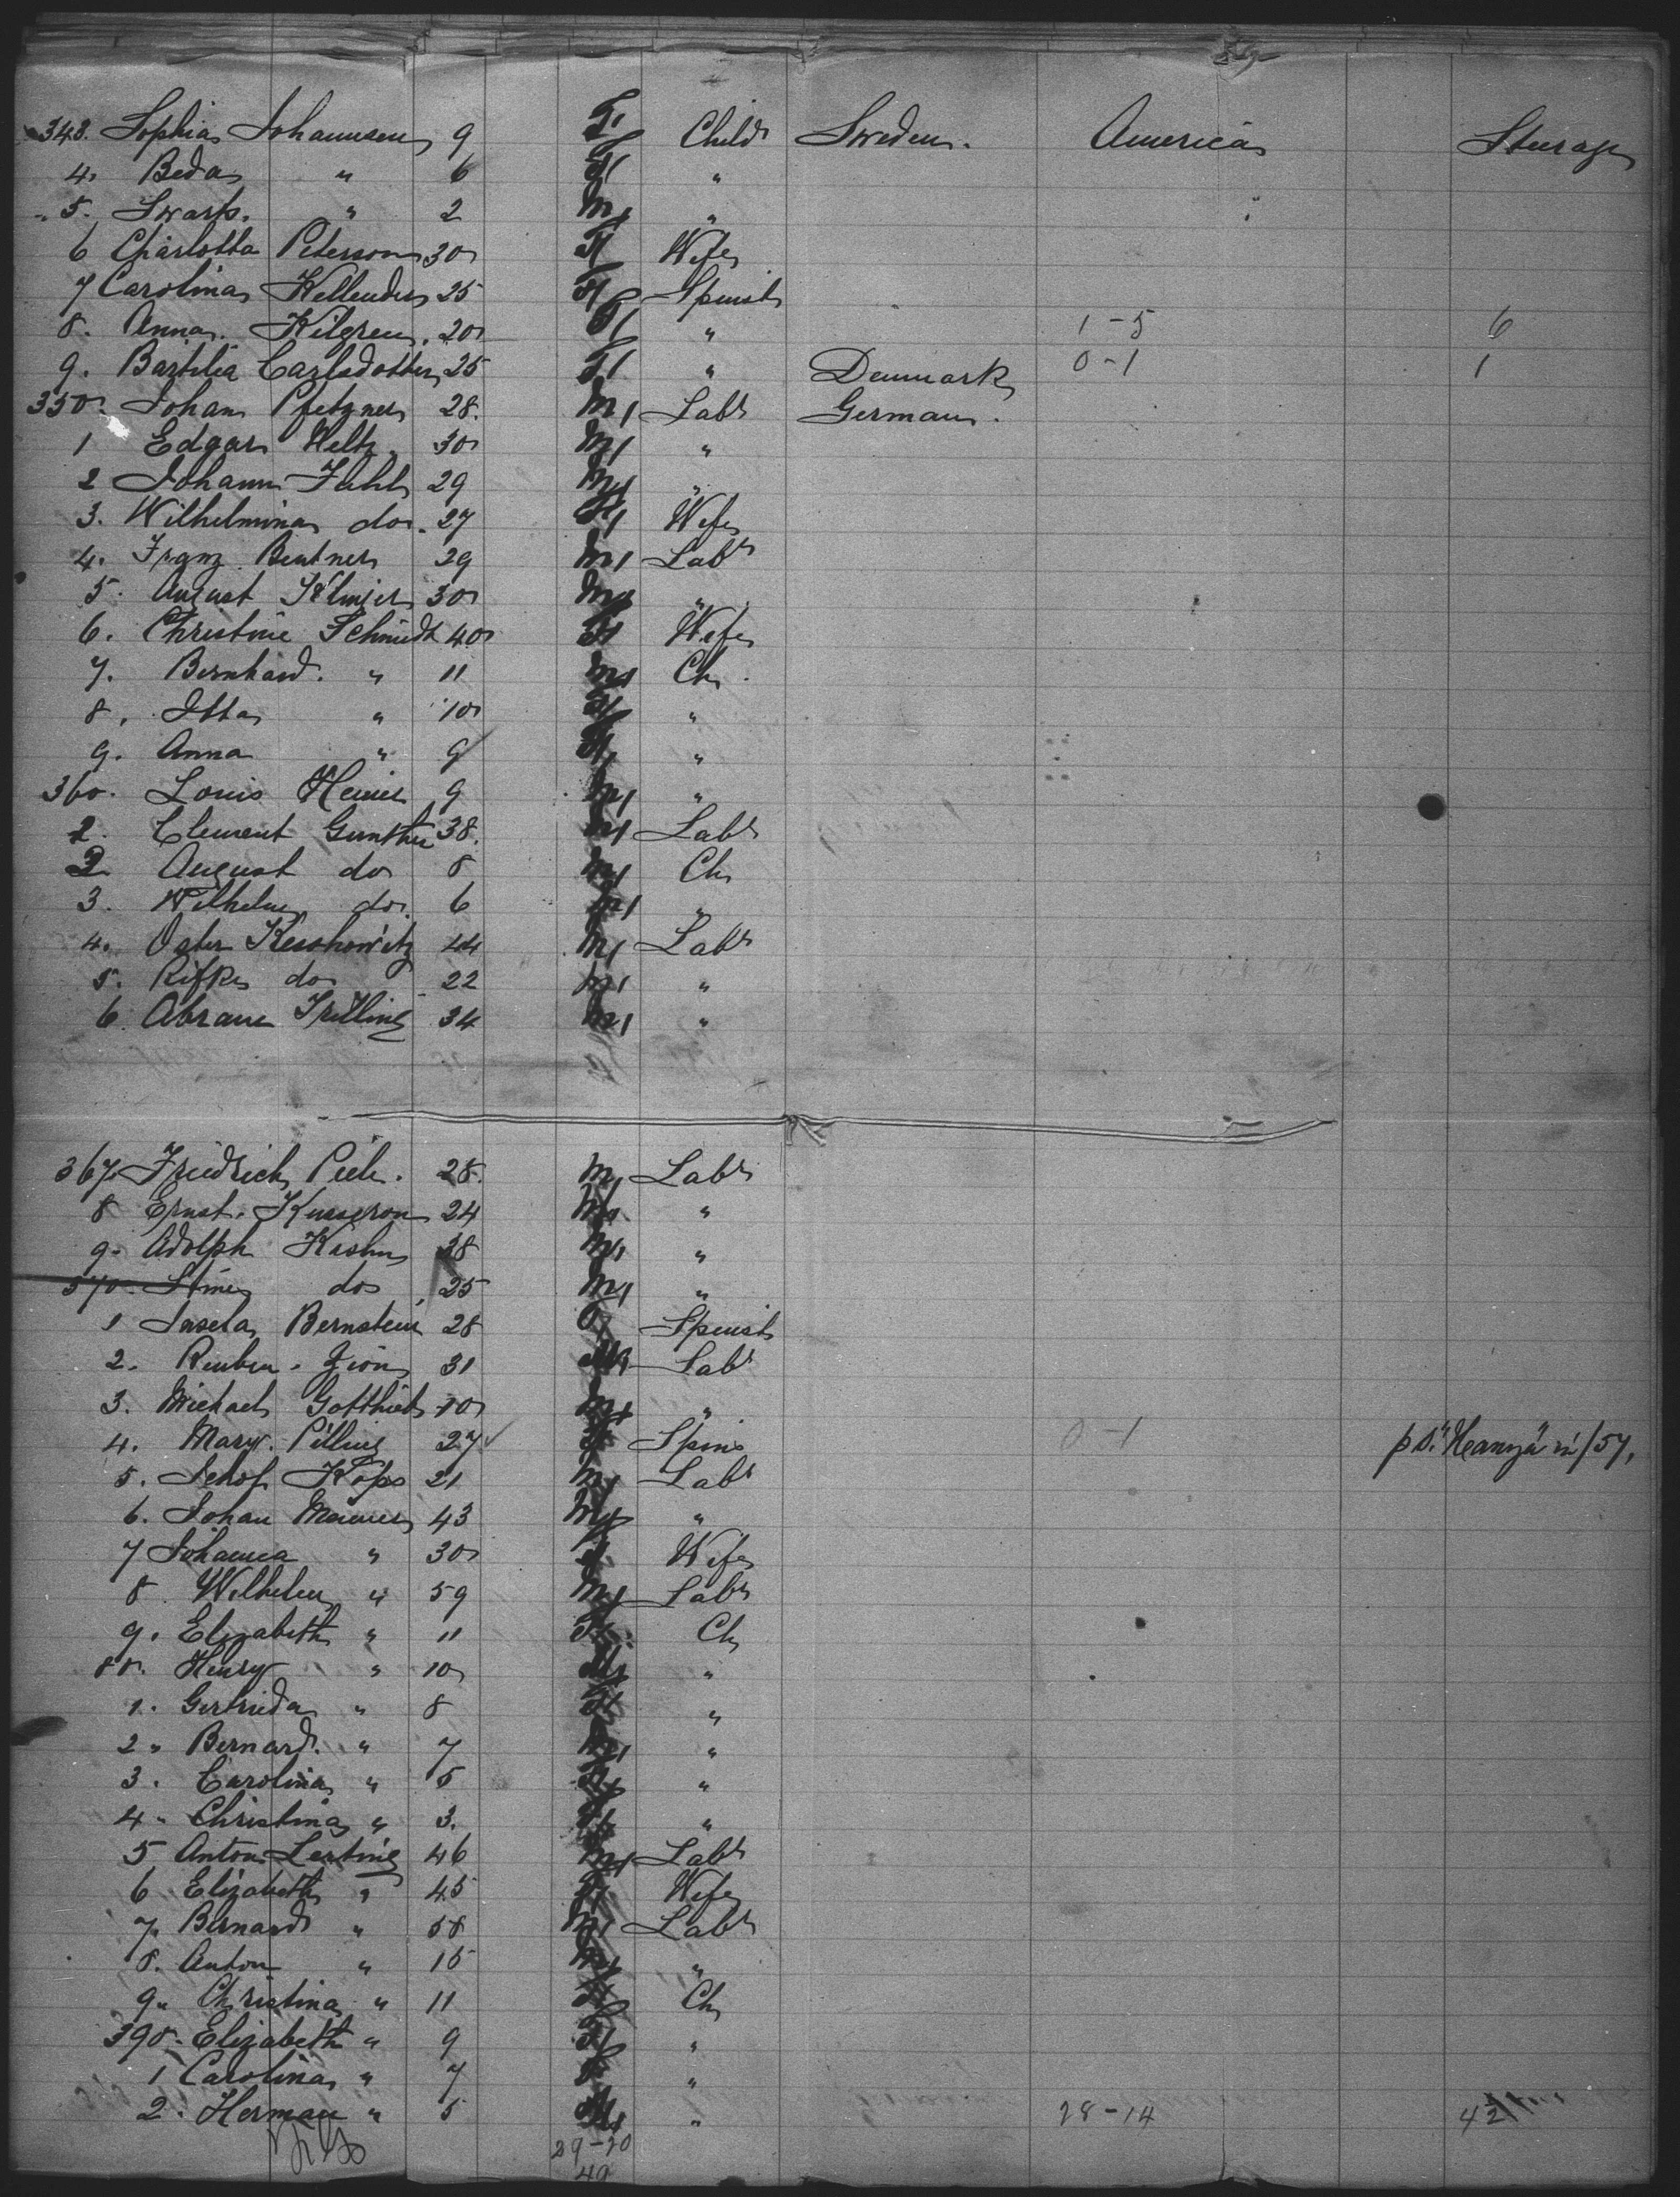 343. Sophia Johannsen 9 F Child Sweden. America Steerage
4. Beda " 6 F "
5. Swarts. " 2 M "
6 Charlotta Peterson 30 F Wife
7 Carolina Kellender 25 F Spinst
8. Anna. Kilgren. 20 F " 1-5 6
9. Bartilia Carlsdotter 25 F " Denmark 0-1 1
350. Johan Pfetzner 28. M Labr German.
1 Edgar Heltz. 30 M "
2 Johann Fahl 29 M "
3. Wilhelmina do. 27 F Wife
4. Franz Beutner 29 M Labr
5. August Klinger 30 M "
6. Christine Schmidt 40 F Wife
7. Bernhard. " 11 M Ch.
8. Itta " 10 F "
9. Anna " 9 F "
360. Louis Heiner 9 M "
2. Clement Gunther 38. M Labr
2 August do 8 M Ch
3. Wilhelm do. 6 M "
4. Oster Kesshowitz 44 M Labr
5. Rifke do 22 M "
6 Abram Trilling 34 M "
367. Friedrich Piele. 28. M Labr
8 Ernst. Kusserow 24 M "
9. Adolph Krohn 38 M "
370. Stine do 25 M "
1 Insela Bernstein 28 F Spinst
2. Reuben. Zion 31 M Labr
3. Michael Gotthieb 10 M "
4. Mary. Pilling 27 F Spins 0-1 p s. "Hanza" in /57,
5. Jakof Kops 21 M Labr
6. Johan Maurer 43 M "
7 Johanna " 30 F Wife
8. Wilhelm " 59 M Labr
9. Elizabeth " 11 F Ch
80. Henry " 10 M "
1. Gertrieda " 8 F "
2. Bernard. " 7 M "
3. Carolina " 5 F "
4. Christina " 3. F "
5 Anton Lerting 46 M Labr
6 Elizabeth " 45 F Wife
7. Bernard " 58 M Labr
8. Anton " 15 M "
9. Christina " 11 F Ch
390. Elizabeth " 9 F "
1 Carolina " 7 F "
2. Herman " 5 M " 28-14 42
29-20
49